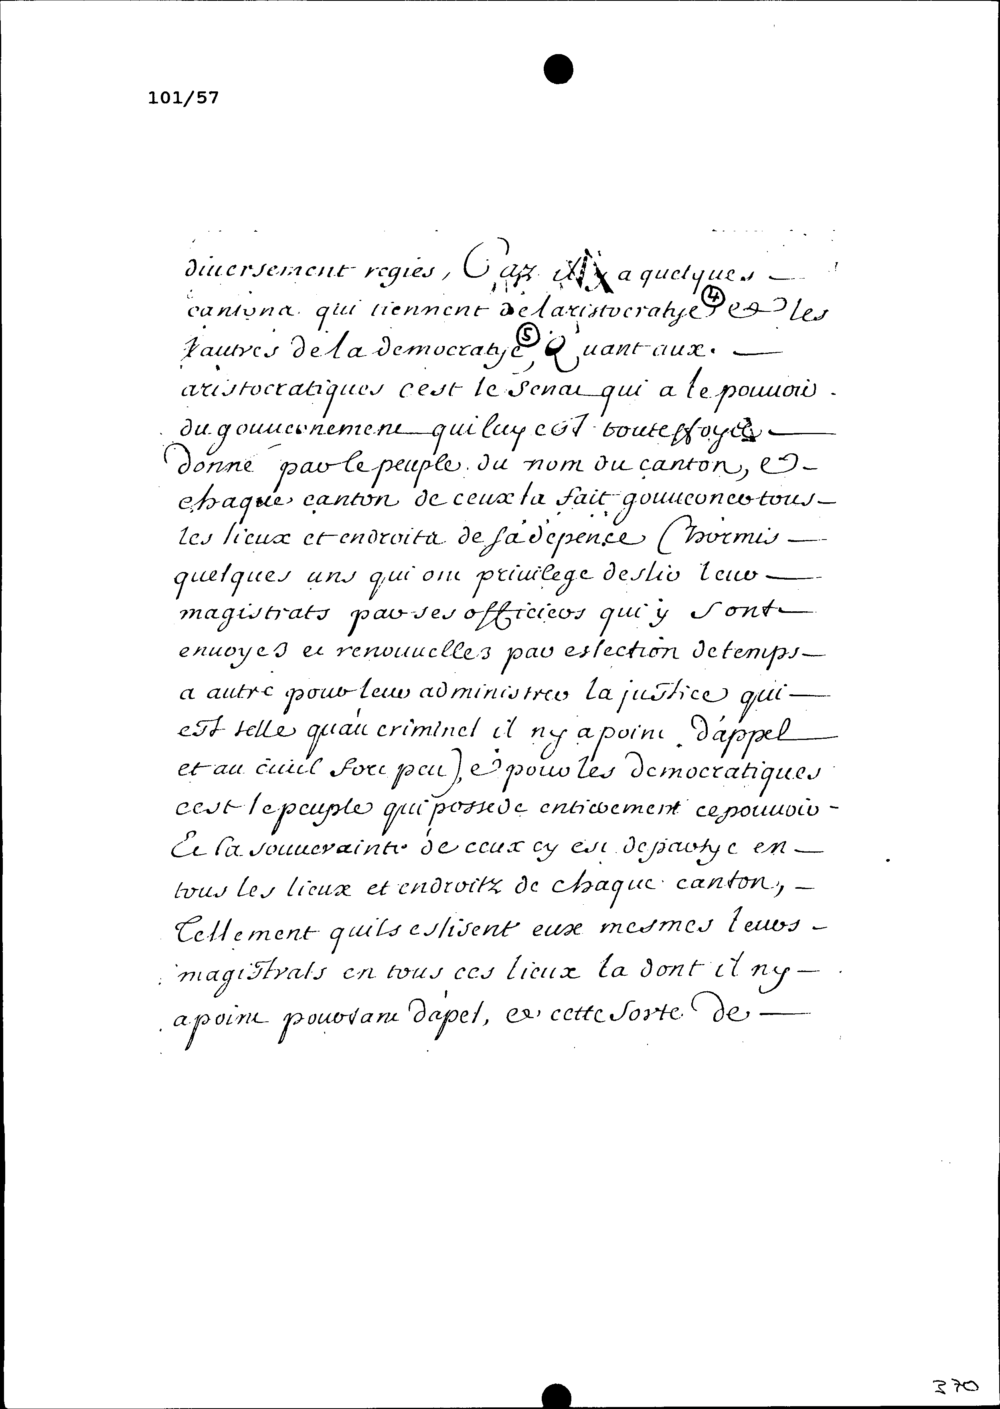 101/57
diuersement regies, Car il y a quelques
cantons qui tiennent de laristocratye ④ et les
autres de la democratye ⑤, Quant aux
aristocratiques cest le Senat qui a le pouuoir
du gouuernement qui luy est touteffoys
donné par le peuple du nom du canton, et
chaque canton de ceux la fait gouuerner tous
les lieux et endroits de sa dépence (hormis
quelques uns qui ont priuilege deslir leur
magistrats par ses officiers qui y sont
enuoyes et renouuelles par eslection de temps
a autre pour leur administrer la justice qui
est telle quau criminel il ny a point dappel
et au ciuil fort peu), et pour les democratiques
cest le peuple qui possede entierement ce pouuoir
Et la souuerainté de ceux cy est departye en
tous les lieux et endroitz de chaque canton,
Tellement quils eslisent eux mesmes leurs
magistrats en tous ces lieux la dont il ny
a point pourtant dapel, et cette sorte de
370